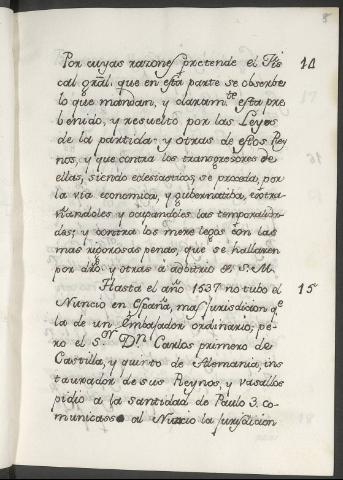 8
Por cuyas razones pretende el Fis 14
cal gral. que en esta parte se obserbe
lo que mandan, y claram.te esta pre
benido, y resuelto por las Leyes
de la partida y otras de estos Rey
nos, y que contra los transgresores de
ellas, siendo eclesiasticos, se proceda, por
la via economica, y gubernatiba, extra-
ñandoles y ocupandoles las temporalida-
des; y contra los mere legos con las
mas rigorosas penas, que se hallaren
por dro. y otras à adbitrio de S. M.
Hasta el año 1537 no tubo el 15
Nuncio en España, mas jurisdicion q.e
la de un Embaxador ordinario; pe-
ro el S.or D.n Carlos primero de
Castilla, y quinto de Alemania, ins
taurador de sus Reynos, y vasallos
pidio a la santidad de Paulo 3. co-
municasse al Nuncio la jurisdicion